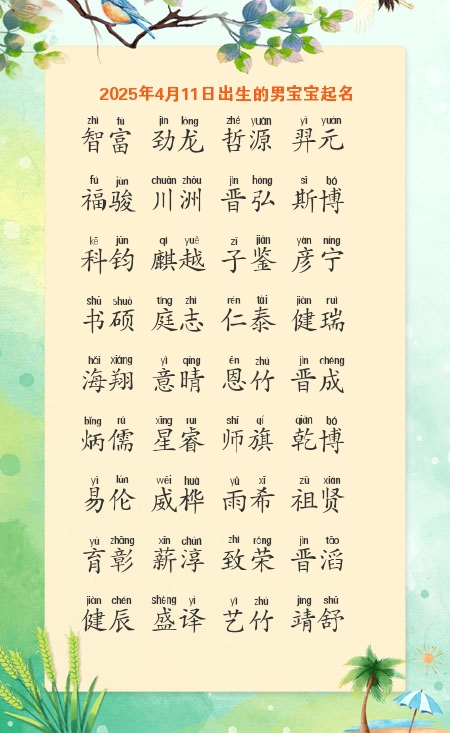 2025年4月11日出生的男宝宝起名
zhì fù jìn lóng zhé yuán yì yuán
智富 劲龙 哲源 羿元
fú jùn chuān zhōu jìn hóng sī bó
福骏 川洲 晋弘 斯博
kē jūn qí yuè zǐ jiàn yàn níng
科钧 麒越 子鉴 彦宁
shū shuò tíng zhì rén tài jiàn ruì
书硕 庭志 仁泰 健瑞
hǎi xiáng yì qíng ēn zhú jìn chéng
海翔 意晴 恩竹 晋成
bǐng rú xīng ruì shī qí qián bó
炳儒 星睿 师旗 乾博
yì lún wēi huà yǔ xī zǔ xián
易伦 威桦 雨希 祖贤
yù zhāng xīn chún zhì róng jìn tāo
育彰 薪淳 致荣 晋滔
jiàn chén shèng yì yì zhú jìng shū
健辰 盛译 艺竹 靖舒